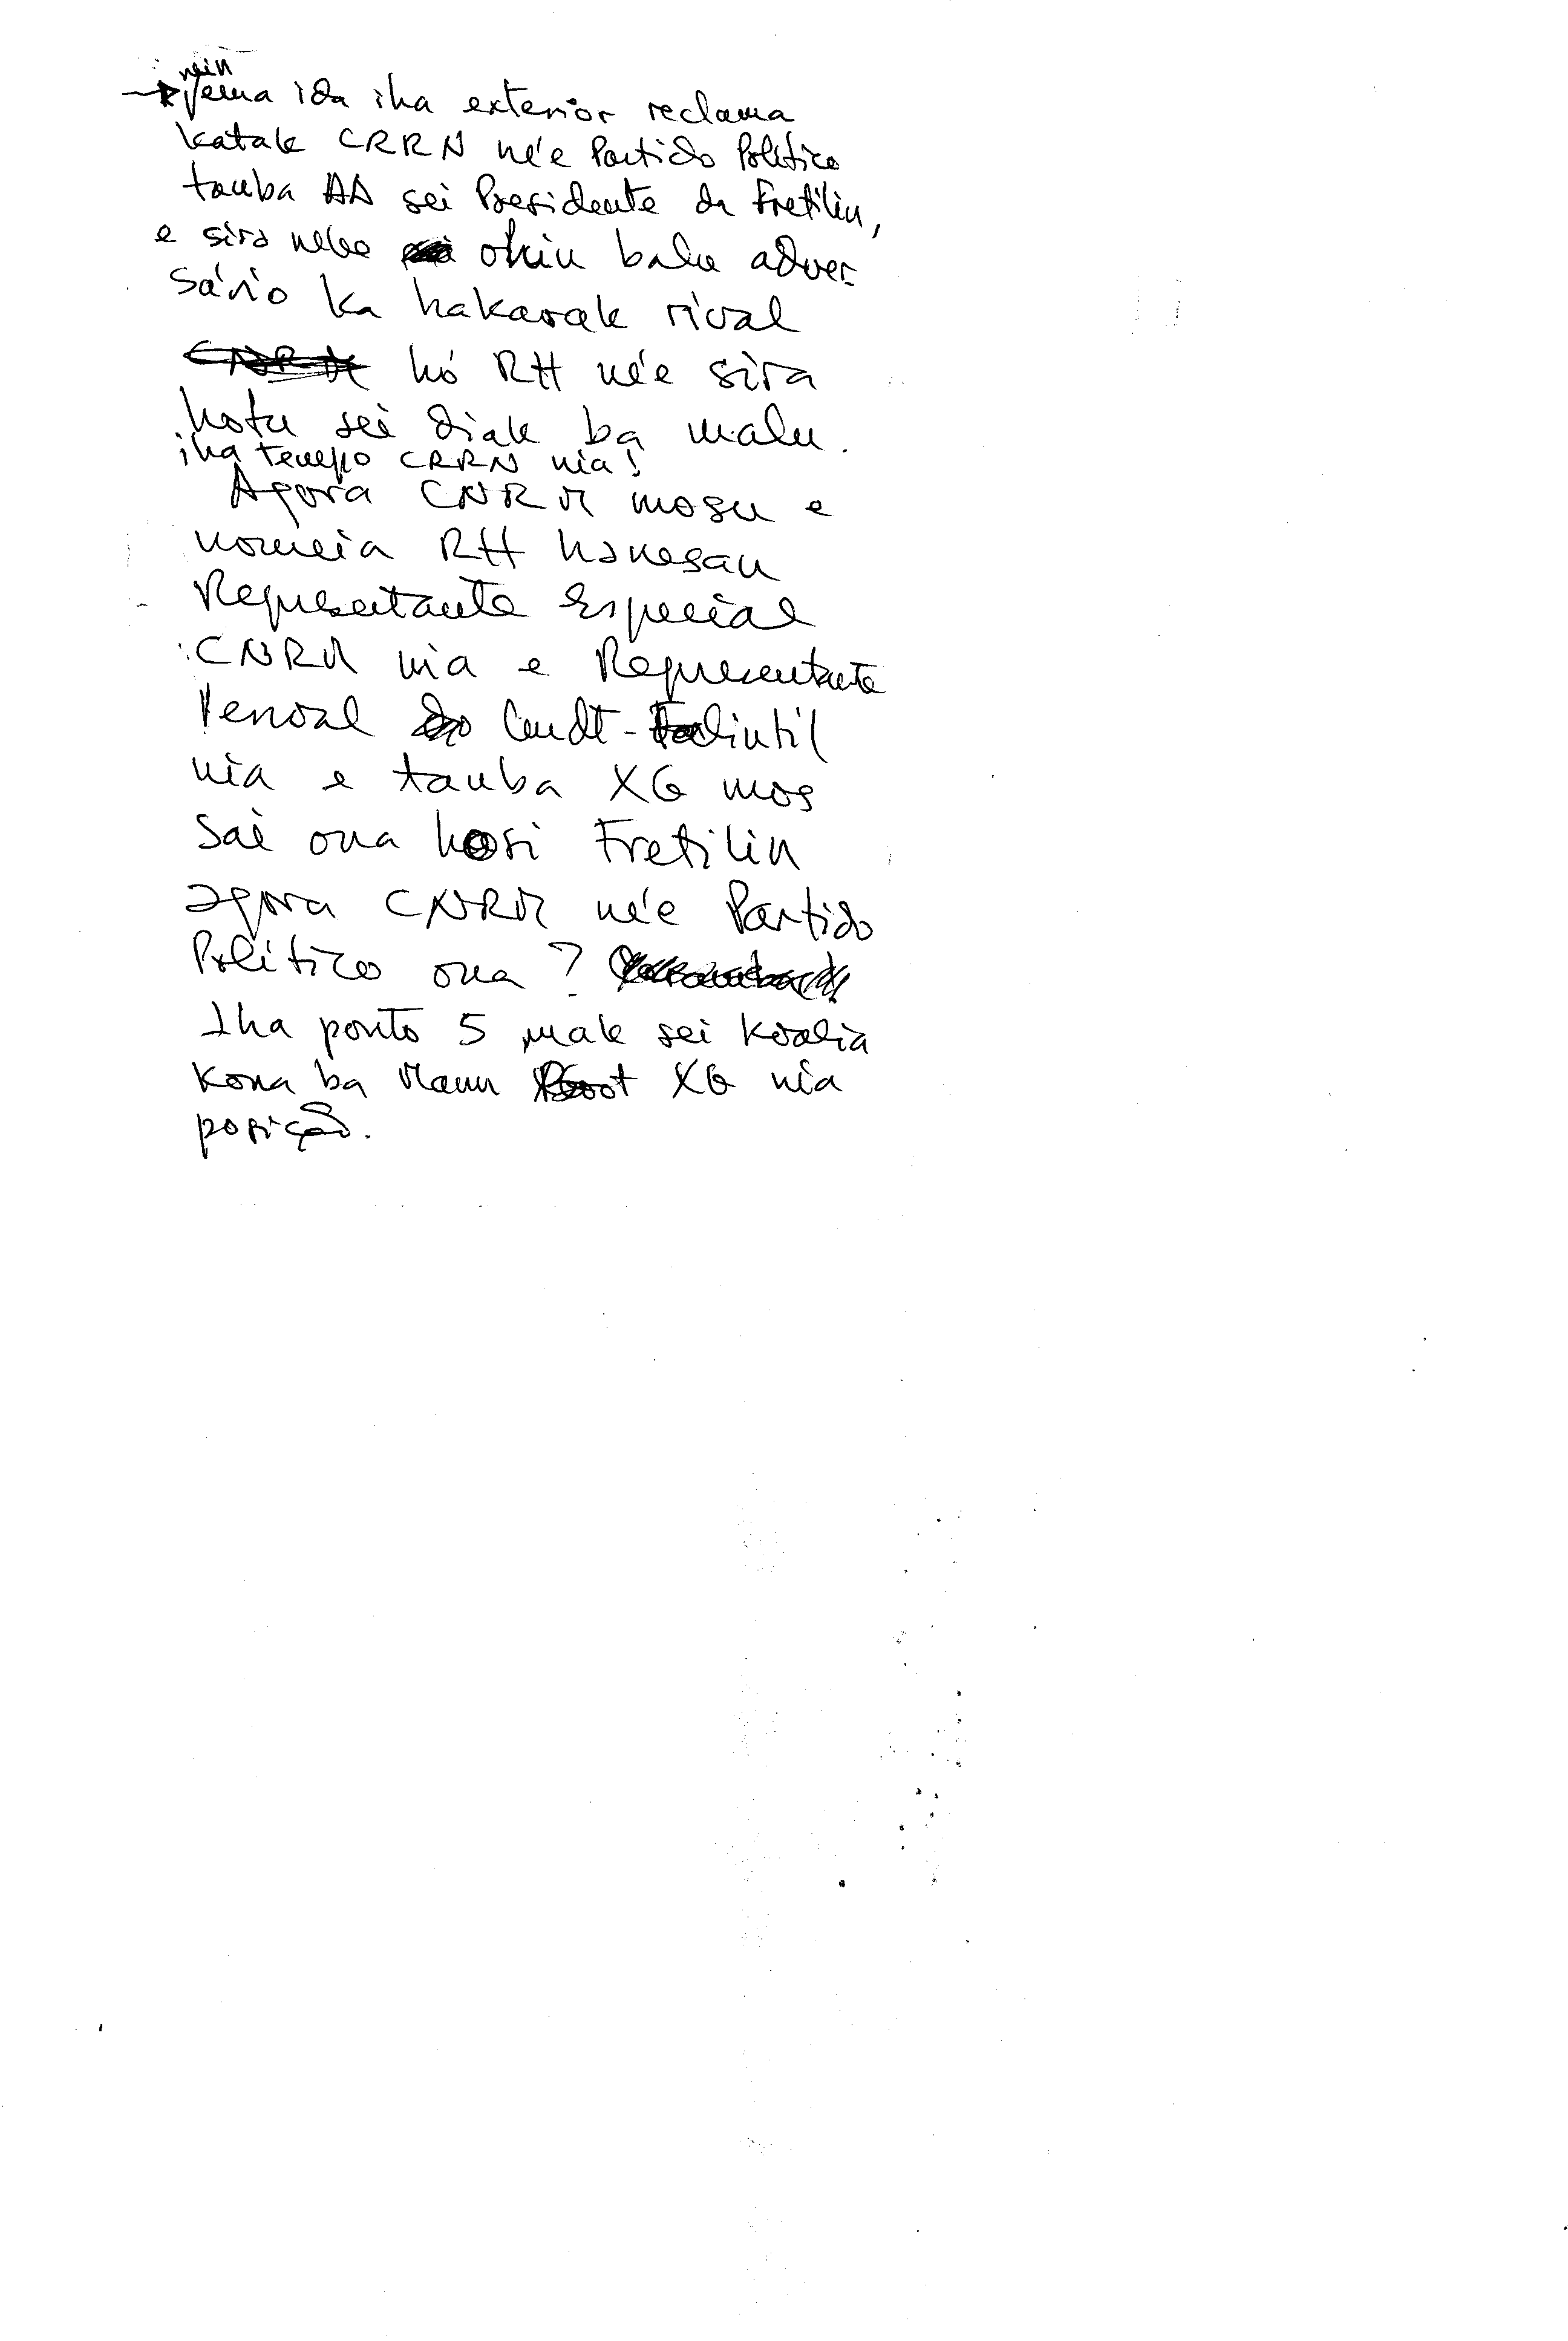 nein
ema ida iha exterior reclama
katak CRRN né'e Partido Político
tanba AA sei Presidente da Fretilin,
e sira nebe ohin balu adver-
sário ka hakarak rival
hó RH né'e sira
hotu sei diak ba malu.
iha tempo CRRN nia!
Agora CNRM mosu e
nomeia RH hanesan
Representante Especial
CNRM nia e Representante
Pessoal do Cmdt-Falintil
nia e tanba XG mos
sai ona hosi Fretilin
agora CNRM né'e Partido
Político ona?
Iha ponto 5 mak sei koalia
kona ba Maun Boot XG nia
posição.